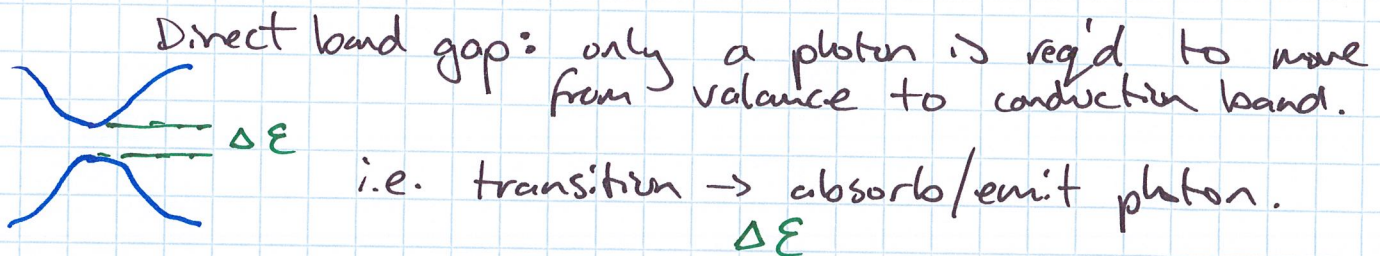 Direct band gap: only a photon is req'd to move
from valance to conduction band.
Δ ε
i.e. transition → absorb/emit photon.
Δ ε